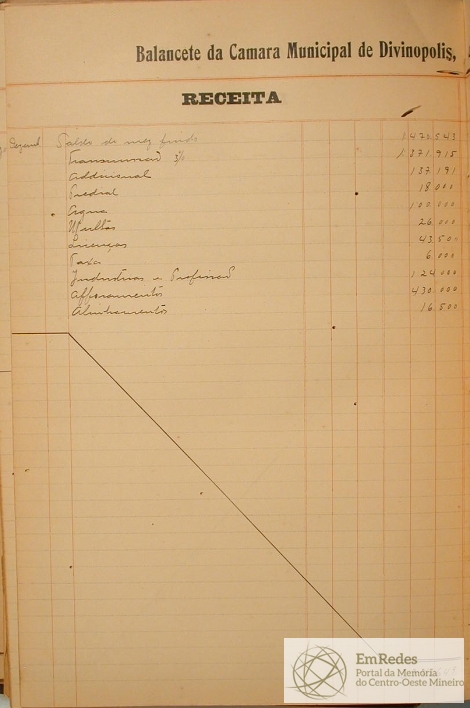 Balancete da Camara Municipal de Divinopolis,
RECEITA
Saldo do mez findo 1.472.543
Transmissão 3% 1.371.915
Addicional 137.191
Predial 18.000
Agua 100.000
Multas 26.000
Licenças 43.500
Taxa 6.000
Industrias e Profissão 124.000
Afforamentos 430.000
Alinhamentos 16.500
EmRedes
Portal da Memória
do Centro-Oeste Mineiro